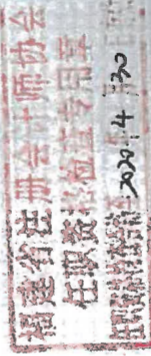 福建省注册会计师协会
任职资格检查专用章
2020.4.30